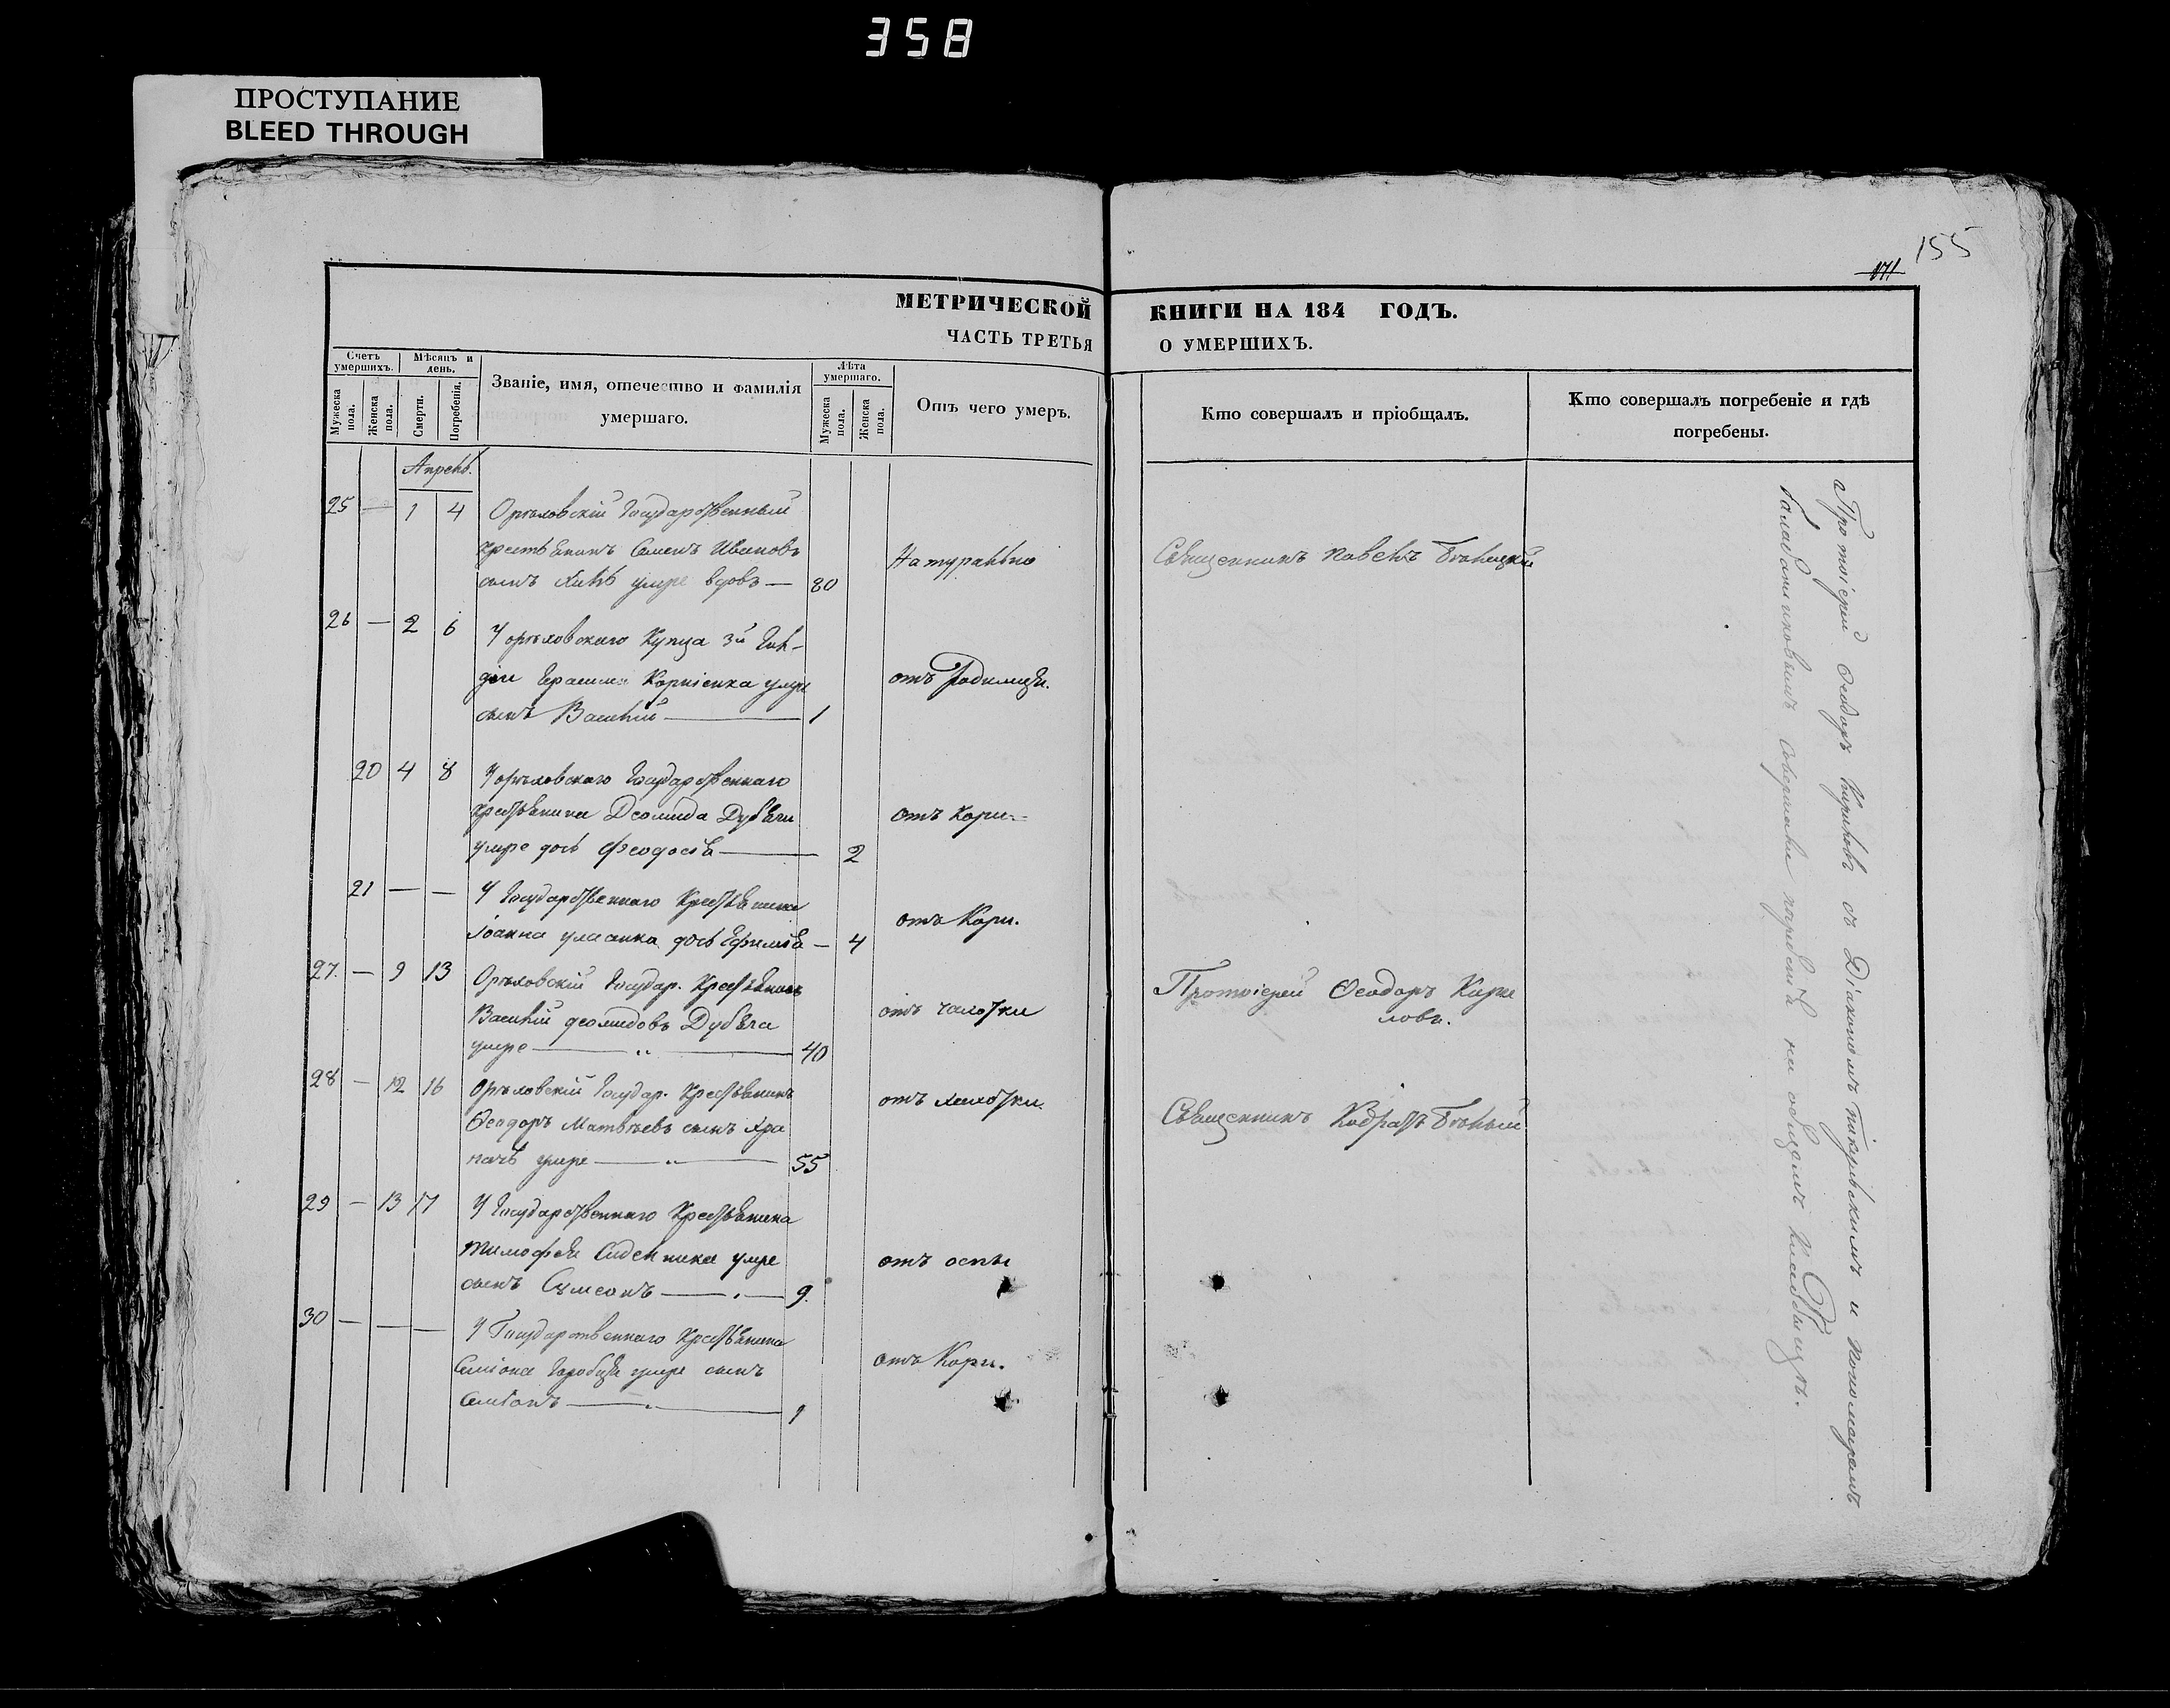 358
ПРОСТУПАНИЕ
BLEED THROUGH
155
171
МЕТРИЧЕСКОЙ КНИГИ НА 184 ГОДЪ.
ЧАСТЬ ТРЕТЬЯ О УМЕРШИХЪ.
Счетъ умершихъ.
Мужеска пола.
Женска пола.
Мѣсяцъ и день.
Смерти.
Погребенія.
Званіе, имя, отечество и фамилія умершаго.
Лѣта умершаго.
Мужеска пола.
Женска пола.
Отъ чего умеръ.
Кто совершалъ и пріобщалъ.
Кто совершалъ погребеніе и гдѣ погребены.
Апрель.
25 — 1 4 Орѣховскій Государственный
крестьянинъ Семенъ Ивановъ
сынъ умре вдовъ — 80
Натурально
Священникъ Павелъ
26 — 2 6 У орѣховскаго Купца 3й Гил-
діи Герасима Корніенка умре
сынъ Василій — 1
отъ Родимця.
20 4 8 У орѣховскаго Государственнаго
Крестьянина Деомида Дубяги
умре дочь Феодосія — 2
отъ Кори
21 — — У Государственнаго Крестьянина
Іоанна дочь Ефимія — 4
отъ Кори.
27. — 9 13 Орѣховскій Государ. Крестьянинъ
Василій деомидовъ Дубяга
умре — 40
отъ чахотки
Протоіерей Ѳеодоръ Кири
ловъ.
28 — 12 16 Орѣховскій Государ. Крестьянинъ
Ѳеодоръ Матвѣевъ сынъ Хра
пачь умре — 55
отъ
Священникъ Кодратъ
29 — 13 17 У Государственнаго Крестьянина
Тимофея умре
сынъ Сѵмеонъ — 9.
отъ оспы
30 — — — У Государственнаго Крестьянина
Семіона Горобця умре сынъ
Семіонъ — 1
отъ Кори.
Протоіерей Ѳеодоръ Кириловъ съ Діакономъ и пономаремъ
совершали погребенія на общемъ Кладбищѣ.